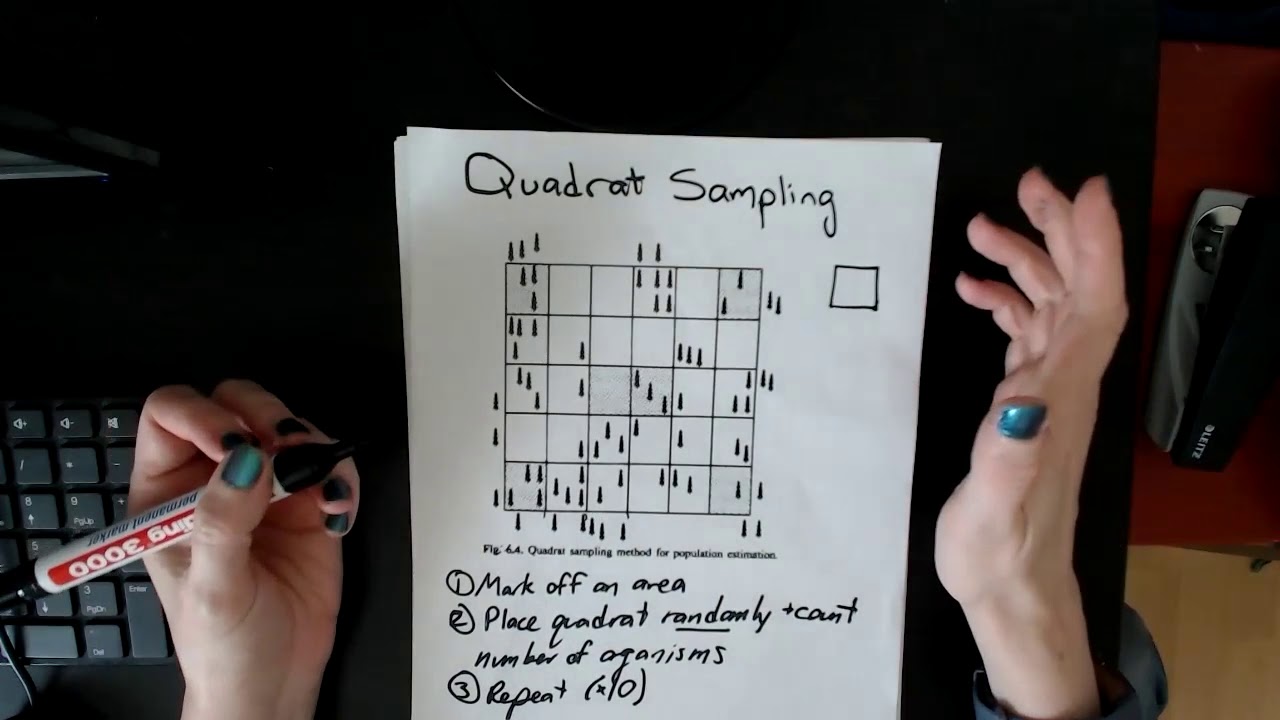 Quadrat Sampling
Fig. 6.4. Quadrat sampling method for population estimation.
① Mark off an area
② Place quadrat randomly + count
number of oganisms
③ Repeat (x10)
ding 3000
permanent marker
LEITZ
/
*
-
8
9
PgUp
+
5
3
PgDn
Enter
Del